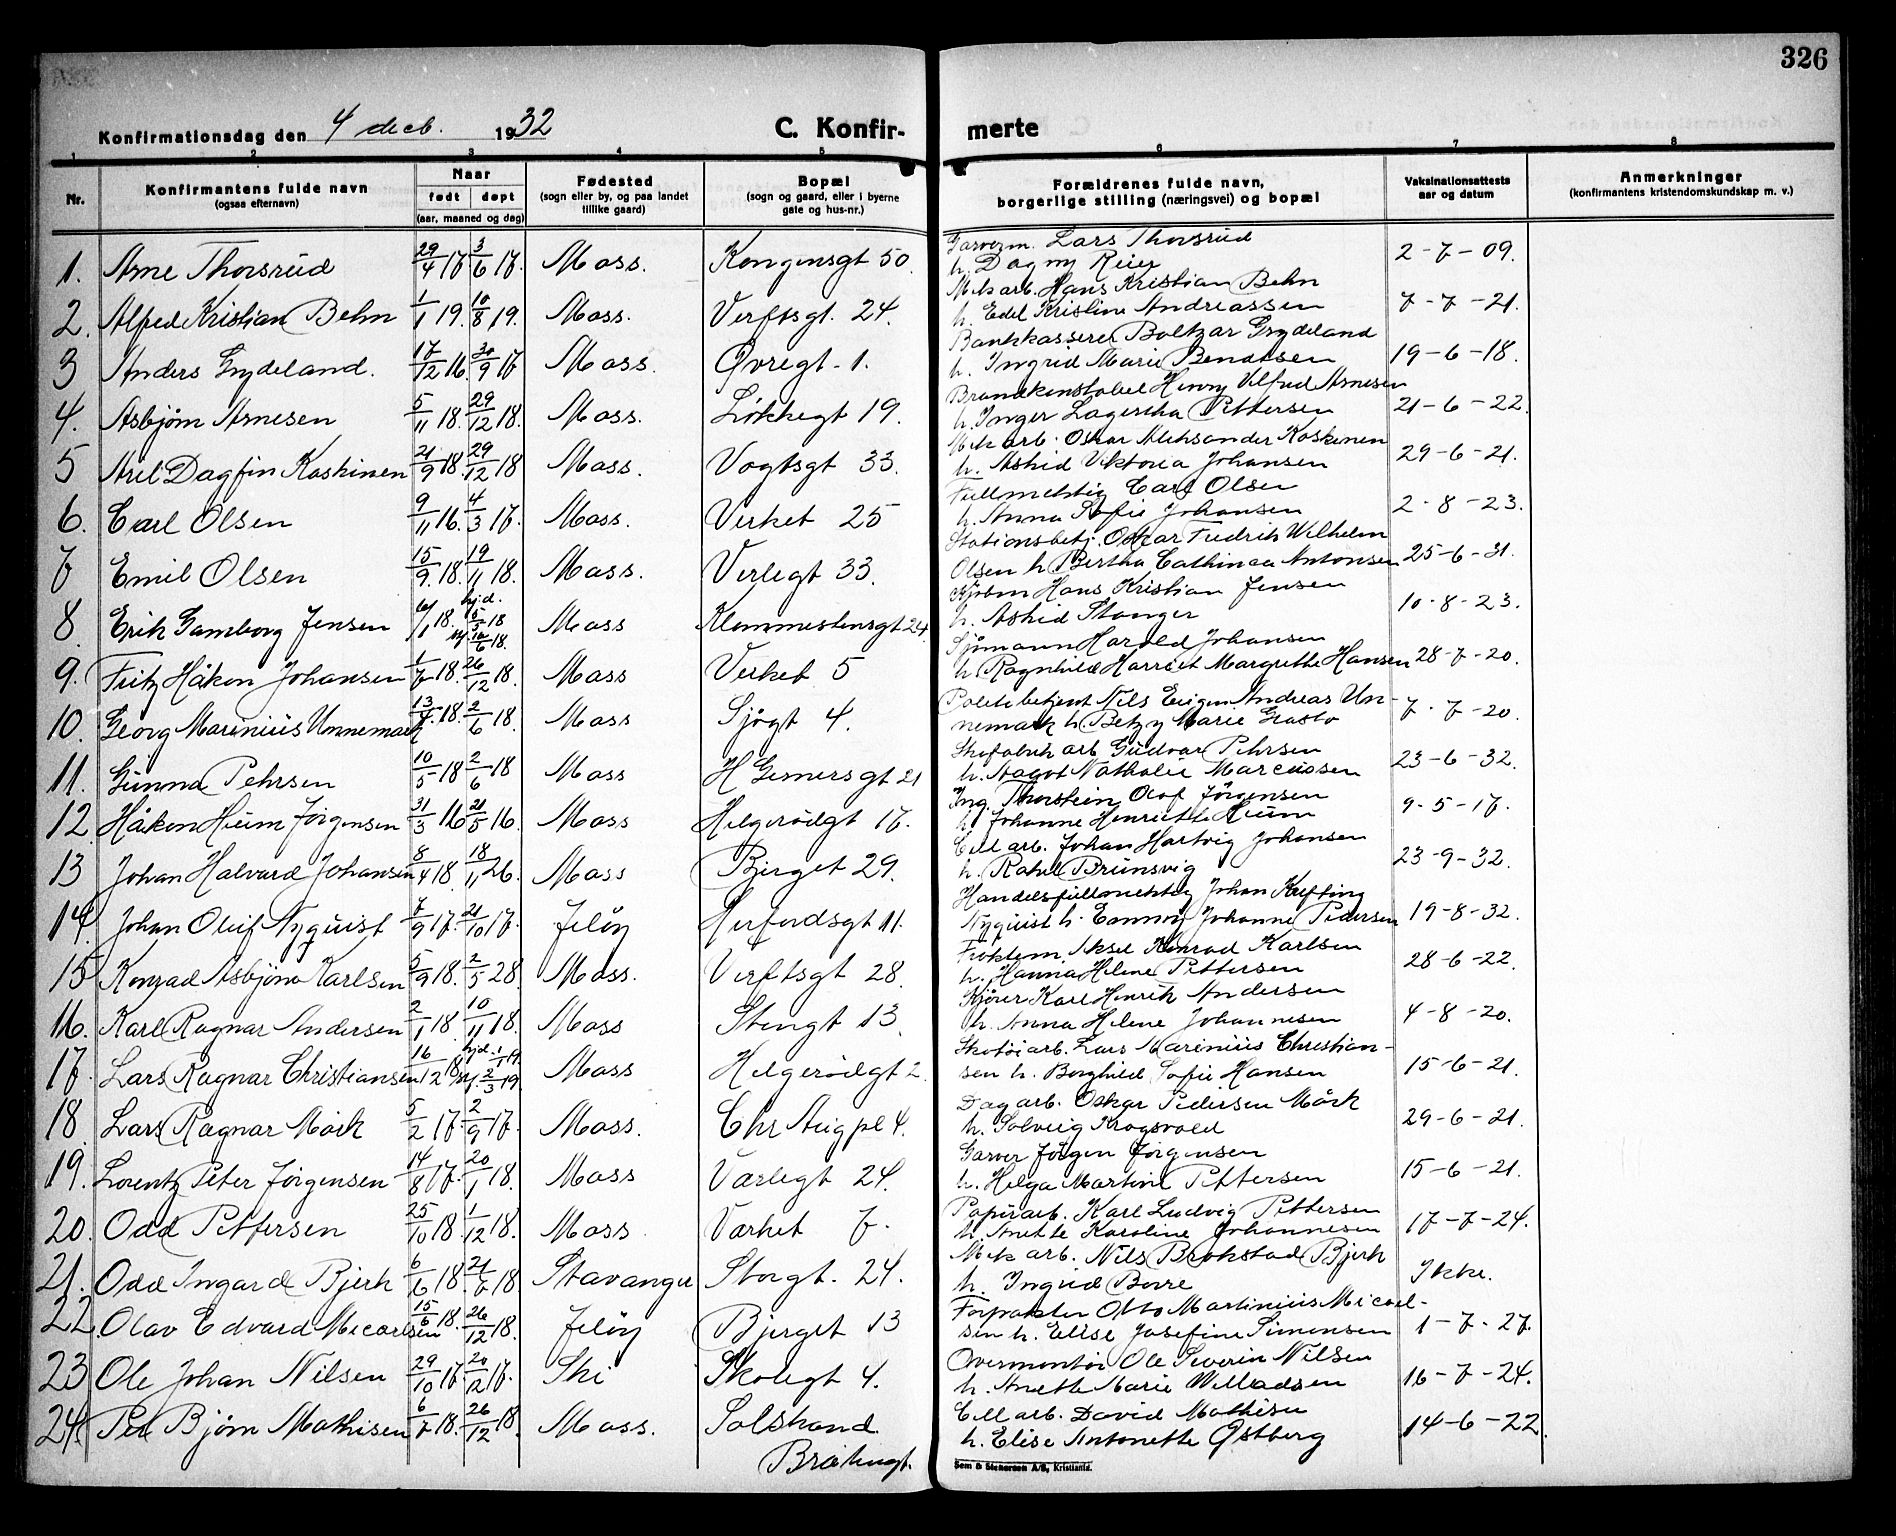 326
Konfirmationsdag den 4 decb. 1932
C. Konfir-
merte
1 2 3 4 5 6 7 8
Nr.
Konfirmantens fulde navn
(ogsaa efternavn)
Naar
født døpt
(aar, maaned og dag)
Fødested
(sogn eller by, og paa landet
tillike gaard)
Bopæl
(sogn og gaard, eller i byerne
gate og hus-nr.)
Forældrenes fulde navn,
borgerlige stilling (næringsvei) og bopæl
Vaksinationsattests
aar og datum
Anmerkninger
(konfirmantens kristendomskundskap m. v.)
1. Arne Thorsrud 29/4 17. 3/6 17. Moss. Kongensgt 50. Garverm. Lars Thorsrud
h. Dagny Reier 2-7-09.
2. Alfred Kristian Behn 1/1 19. 10/8 19. Moss. Verftsgt. 24. Mek arb. Hans Kristian Behn
h. Edel Kristine Andreassen 7-7-21.
3 Anders Grydeland. 17/12 16. 30/9 17 Moss. Øvregt. 1. Bankkasserer Baltzar Grydeland
h. Ingrid Marie Bendtsen 19-6-18.
4. Asbjørn Arnesen 5/11 18. 29/12 18. Moss. Løkkegt 19. Brandkonstabel Henry Vilfred Arnesen
h. Inger Lagertha Pettersen 21-6-22.
5 Axel Dagfin Koskinen 21/9 18. 29/12 18 Moss. Vogtsgt 33. Mek arb. Oskar Aleksander Koskenen
h. Astrid Viktoria Johansen 29-6-21.
6. Carl Olsen 9/11 16. 4/3 17. Moss. Verket 25 Fullmektig Carl Olsen
h. Anna Sofie Johansen 2-8-23.
7 Emil Olsen 15/9 18. 19/11 18. Moss. Verlegt 33. Stationsbetj. Oskar Fredrik Wilhelm
Olsen h. Bertha Cathinca Antonsen 25-6-31.
8. Erik Gamborg Jensen 18. hjd. 5/5 18 10/6 18. Moss Klommestensgt 24. Kjøbm Hans Kristian Jensen
h. Astrid Stanger 10-8-23.
9. Fritz Håkon Johansen 1/7 18. 26/12 18. Moss Verket 5 Sjømann Harald Johansen
h. Ragnhild Harriet Margrethe Hansen 28-7-20.
10. Georg Marinius Unnemark 13/4 18. 2/6 18. Moss Sjøgt 4. Politibetjent Nils Andreas Un-
nemark h. Betzy Marie Grasto 7-7-20.
11. Gunna Pehrsen 10/5 18 2/6 18 Moss H Gerners gt 21 Skofabrik arb Gudvar Pehrsen
h. Aagot Nathalie Marcussen 23-6-32.
12. Håkon Heum Jørgensen 31/3 16 21/5 16. Moss Helgerødgt 17. Ing. Thorstein Olaf Jörgensen
h. Johanne Henriette Heum 9-5-17.
13 Johan Halvard Johansen 8/4 18. 18/11 26. Moss Bjerget 29. Cell arb. Johan Hartvig Johansen
h. Rakel Brunsvig 23-9-32.
14. Johan Oluf Nyquist 7/9 17. 21/10 17. Jeløy Herfordsgt 11. Handelsfullmektig Johan Krefting
Nyquist h. Johanne Pedersen 19-8-32.
15 Konrad Asbjørn Karlsen 5/9 18. 2/5 28. Moss. Verftsgt 28. Aksel Konrad Karlsen
h. Hanna Helene Pettersen 28-6-22.
16. Karl Ragnar Andersen 2/1 18. 10/11 18. Moss Stengt 13. Kjører Karl Henrik Andersen
h. Anna Helene Johannesen 4-8-20.
17. Lars Ragnar Christiansen 16/12 18 hjd. 1/1 19 2/3 19. Moss Helgerødgt 2. Skotøiarb. Lars Marinius Christian-
sen h. Borghild Sofie Hansen 15-6-21.
18. Lars Ragnar Mørk 5/2 17. 2/9 17. Moss. Chr Aug pl 4. Dagarb. Oskar Pedersen Mörk
h. Solveig Krogsvold 29-6-21.
19. Lorentz Peter Jørgensen 14/8 17. 20/1 18. Moss Varlegt 24. Garver Jörgen Jörgensen
h. Helga Martine Pettersen 15-6-21.
20. Odd Pettersen 25/10 18. 1/12 18. Moss Varket 7. Papirarb. Karl Ludvig Pettersen
h. Anette Karoline Johannesen 17-7-24.
21. Odd Ingard Bjerk 6/6 18. 21/7 18. Stavanger Storgt. 24. Mek arb. Nils Brokstad Bjerk
h. Ingrid Borre Ikke.
22. Olav Edvard Micaelsen 15/6 18. 26/12 18. Jeløy Bjerget 13 Forpakter Otto Martinius Micael-
sen h. Elise Josefine Simonsen 1-7-27.
23 Ole Johan Nilsen 29/10 17. 20/12 17. Ski Skolegt 4. Overmontör Ole Severin Nilsen
h. Anette Marie Willadsen 16-7-24.
24. Per Bjørn Mathisen 6/7 18. 26/12 18. Moss. Solstrand Cell arb. David Mathisen
h. Elise Antonette Østberg 14-6-22.
Sem & Stenersen A/S, Kristiania.